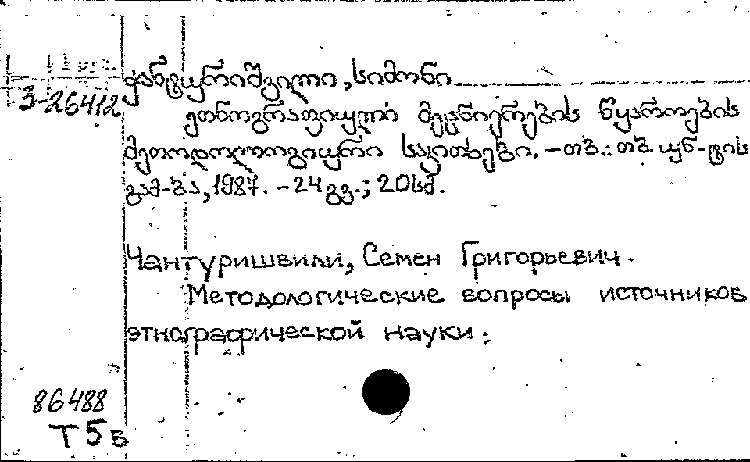 ჭანტურიშვილი, სიმონი
3-26412
ეთნოგრაფიული მეცნიერების წყაროების
მეთოდოლოგიური საკითხები. – თბ.: თბ. უნ-ტის
გამ-ბა, 1987. – 24 გვ.; 20 სმ.
Чантуришвили, Семен Григорьевич.
Методологические вопросы источников
этнографической науки.
86488
Т 5 в